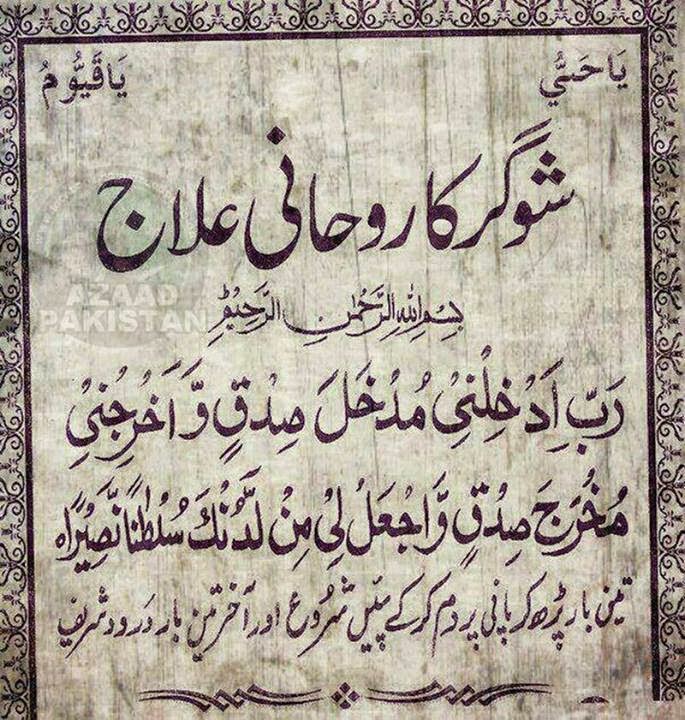 يَاحَيُّ يَاقَيُّومُ
شوگر کا روحانی علاج
AZAAD
PAKISTAN
بِسْمِ اللهِ الرَّحْمٰنِ الرَّحِيْمِ
رَبِّ اَدْخِلْنِیْ مُدْخَلَ صِدْقٍ وَّ اَخْرِجْنِیْ
مُخْرَجَ صِدْقٍ وَّاجْعَلْ لِیْ مِنْ لَّدُنْكَ سُلْطٰنًا نَّصِیْرًا ہ
تین بار پڑھ کر پانی پر دم کر کے پئیں شروع اور آخر تین بار درود شریف